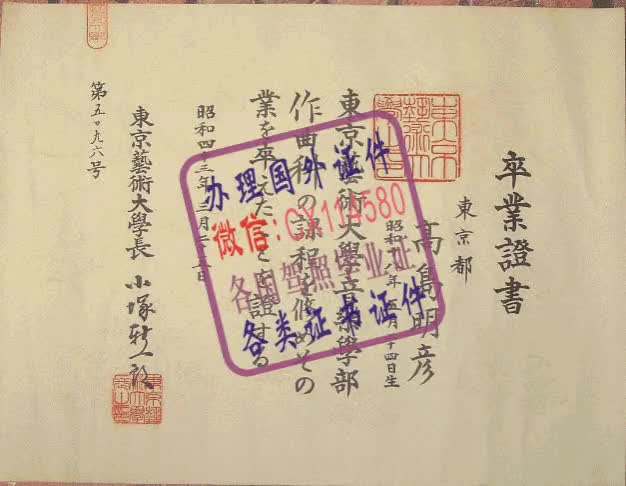 卒業證書
東京都
髙島明彦
昭和十八年 月十四日生
東京藝術大學音樂學部
作曲科の課程を修めその
業を卒えたことを證する
昭和四十三年三月二十五日
東京藝術大學長 小塚新一郎
第五〇九六号
办理国外证件
微信:CY114580
各国驾照学业证
各类证书证件